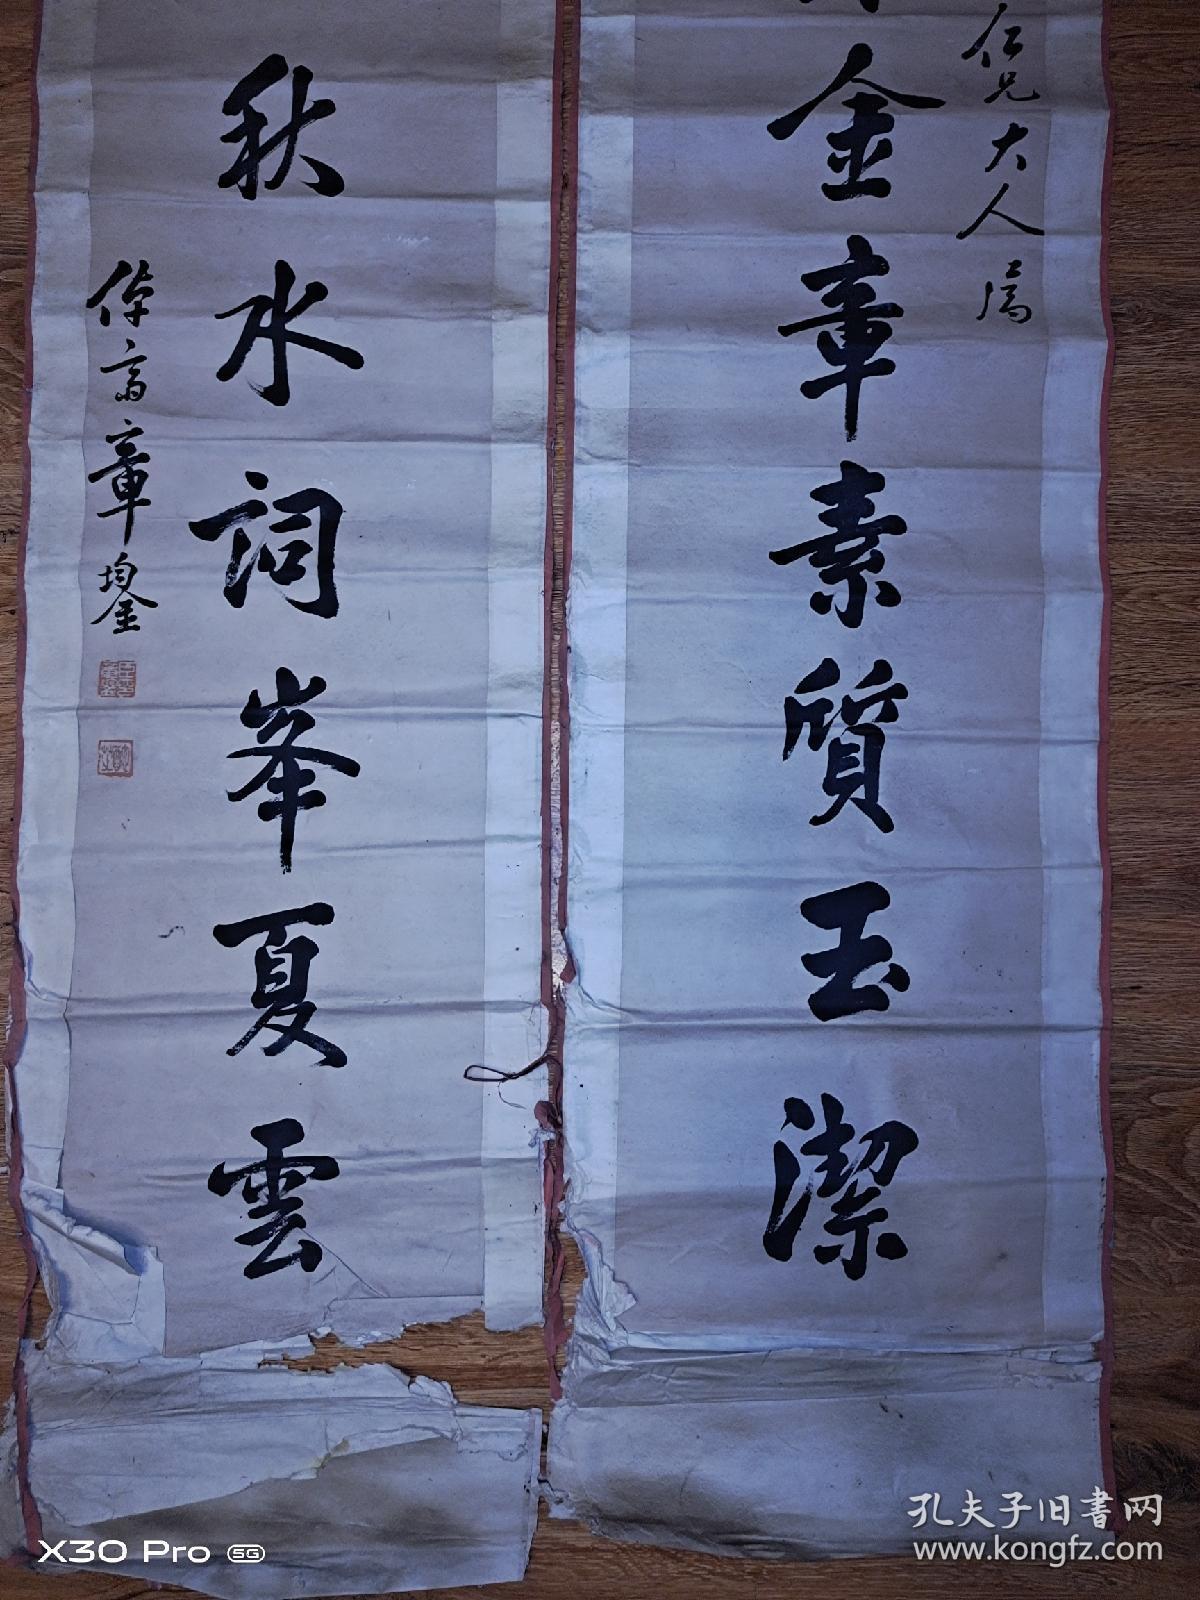 仁兄大人属
金章素質玉潔
秋水詞峯夏雲
偉齋章鋆
孔夫子旧書网
www.kongfz.com
X30 Pro 5G